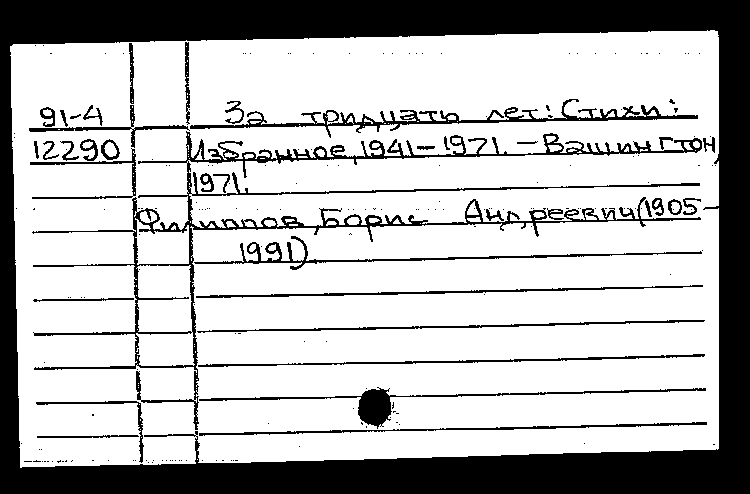 91-4 За тридцать лет: Стихи:
12290 Избранное, 1941-1971. - Вашингтон,
1971.
Филиппов, Борис Андреевич (1905-
1991).